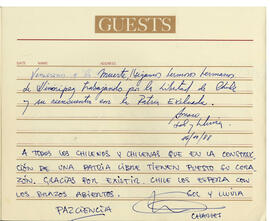 GUESTS
DATE NAME
Venceremos a la Muerte/Sigamos hermosos hermanos
de Winnipeg trabajando por la libertad de Chile
y su reencuentro con la Patria Exiliada.
Amaro
Sol y Lluvia
/88
A TODOS LOS CHILENOS Y CHILENAS QUE EN LA CONSTRUC-
CIÓN DE UNA PATRIA LIBRE TIENEN PUESTO SU CORA
ZÓN. GRACIAS POR EXISTIR, CHILE LOS ESPERA CON
LOS BRAZOS ABIERTOS.
SOL Y LLUVIA
PAZCIENCIA
CHARLES